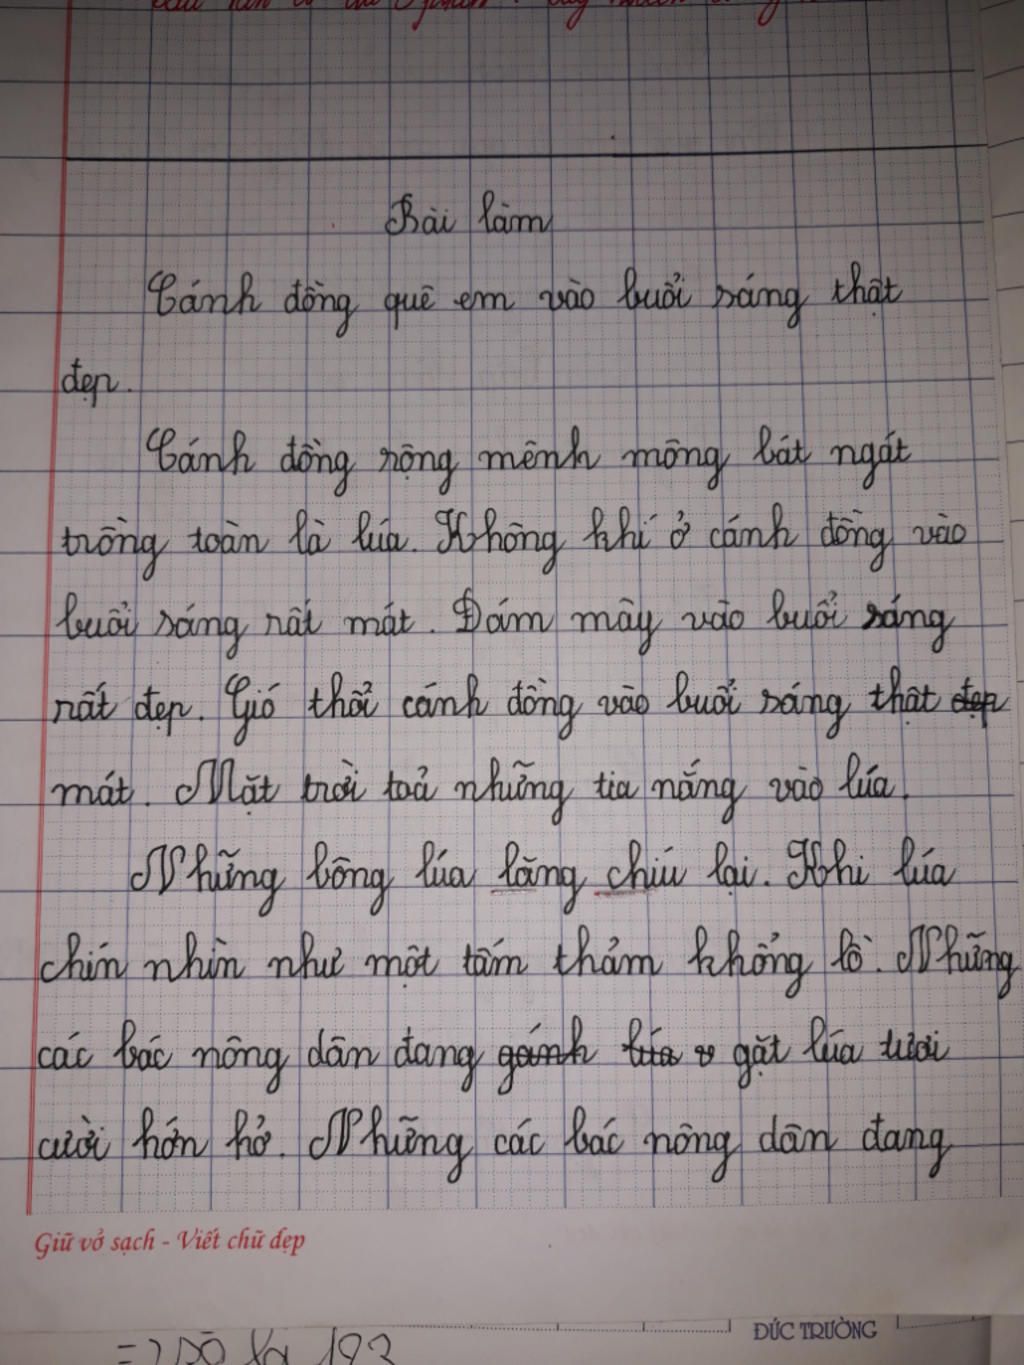 Bài làm
Cánh đồng quê em vào buổi sáng thật
đẹp.
Cánh đồng rộng mênh mông bát ngát
trồng toàn là lúa. Không khí ở cánh đồng vào
buổi sáng rất mát. Đám mây vào buổi sáng
rất đẹp. Gió thổi cánh đồng vào buổi sáng thật đẹp
mát. Mặt trời toả những tia nắng vào lúa.
Những bông lúa lăng chíu lại. Khi lúa
chín nhìn như một tấm thảm khổng lồ. Những
các bác nông dân đang gánh lúa v gặt lúa tươi
cười hớn hở. Những các bác nông dân đang
Giữ vở sạch - Viết chữ đẹp
ĐỨC TRƯỜNG